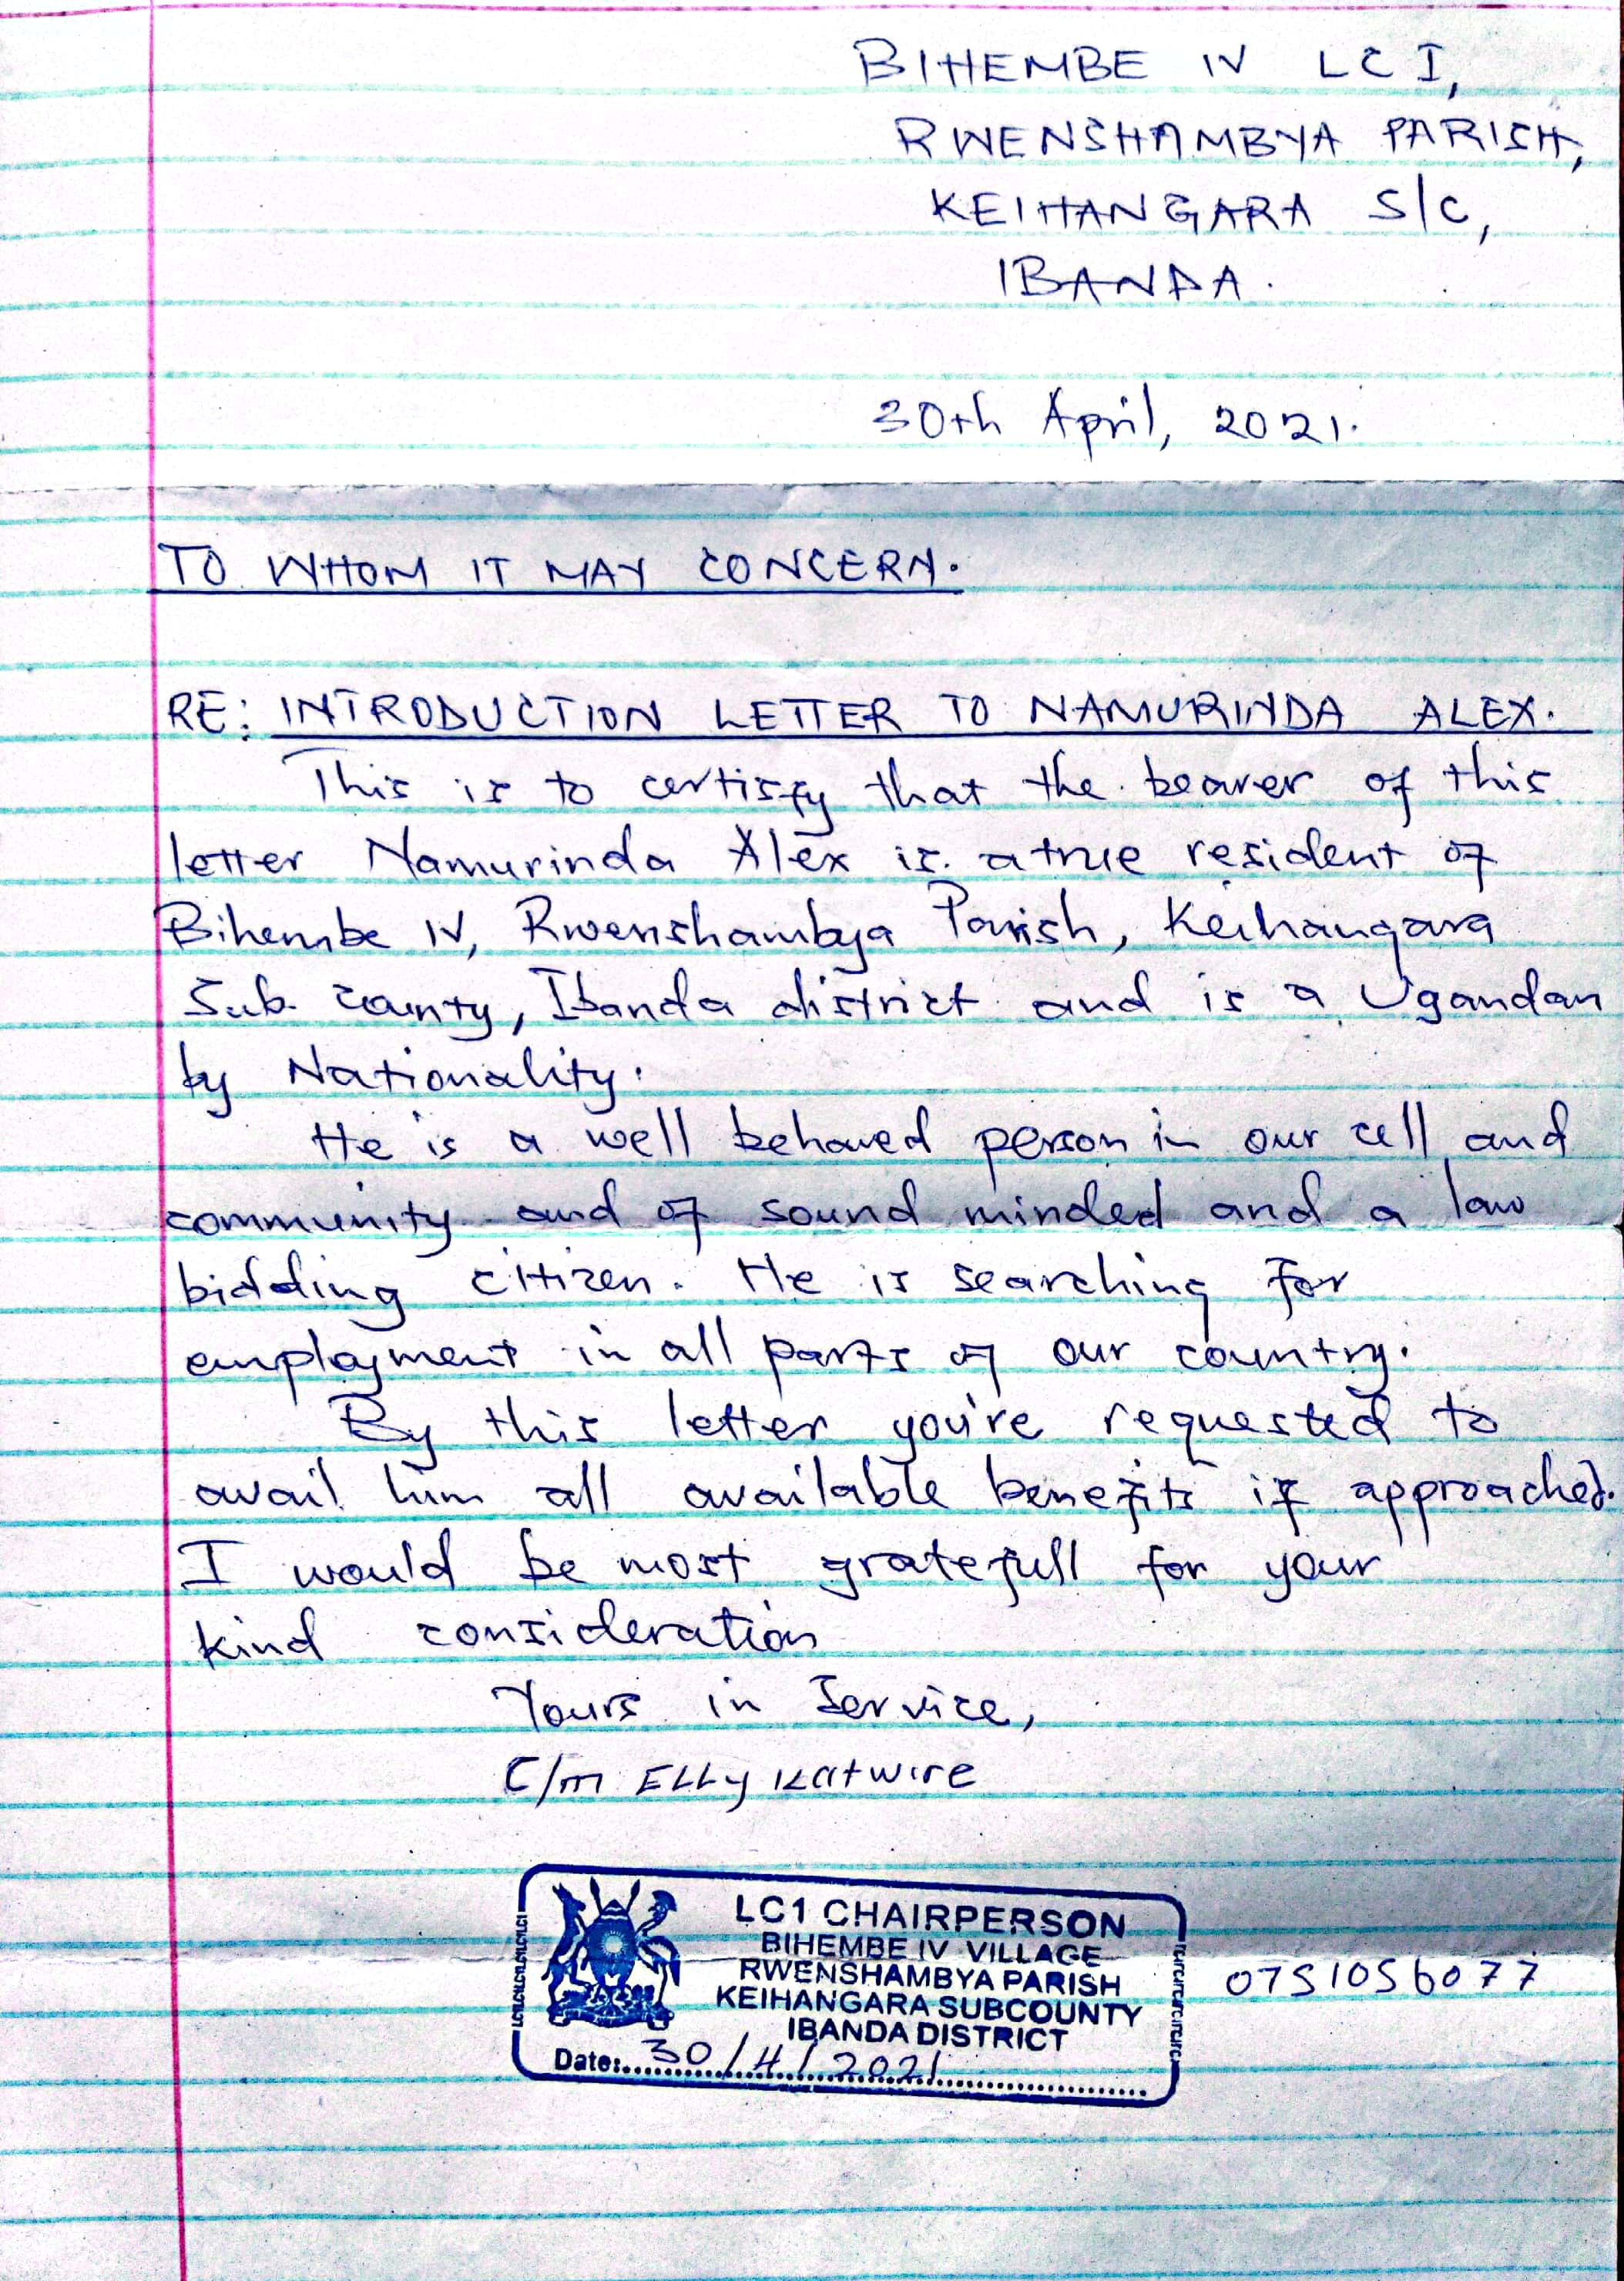 BIHEMBE IV LC I,
RWENSHAMBYA PARISH,
KEIHANGARA S/C,
IBANDA.
30th April, 2021.
TO WHOM IT MAY CONCERN.
RE: INTRODUCTION LETTER TO NAMURINDA ALEX.
This is to certisfy that the bearer of this
letter Namurinda Alex is a true resident of
Bihembe IV, Rwenshambya Parish, Keihangara
Sub. County, Ibanda district and is a Ugandan
by Nationality.
He is a well behaved person in our cell and
community and of sound minded and a law
bidding citizen. He is searching for
employment in all parts of our country.
By this letter you're requested to
avail him all available benefits if approached.
I would be most gratefull for your
kind consideration
Yours in Service,
C/m Elly Katwire
LC1 CHAIRPERSON
BIHEMBE IV VILLAGE
RWENSHAMBYA PARISH
KEIHANGARA SUBCOUNTY
IBANDA DISTRICT
Date: 30/4/2021
0751056077